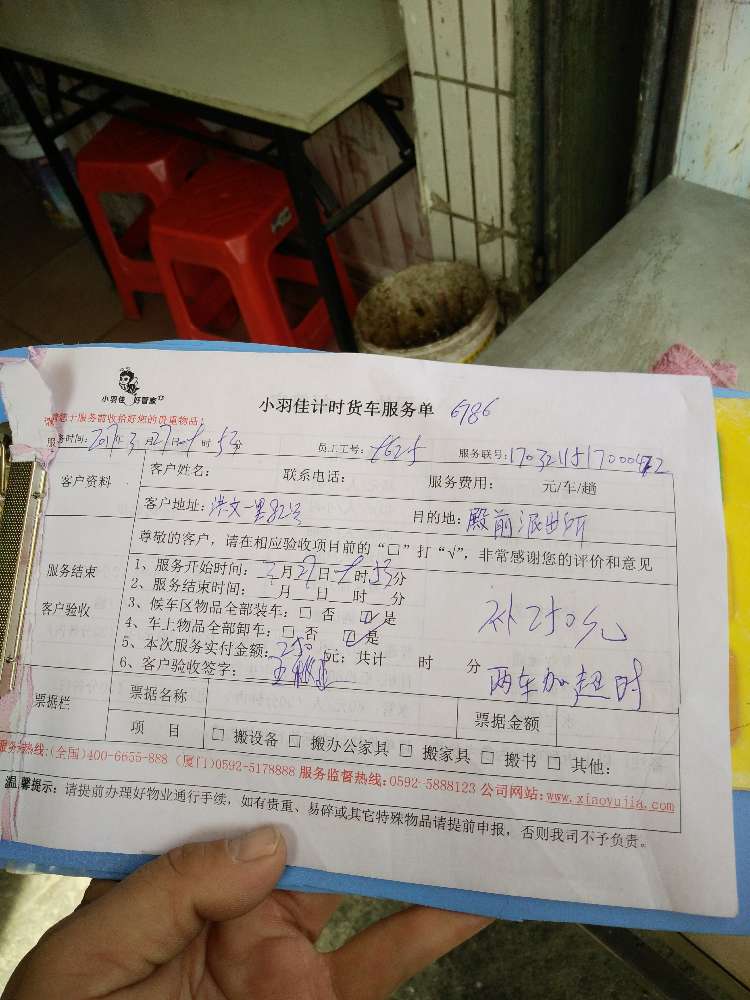 小羽佳 好管家
小羽佳计时货车服务单 6786
请您于服务前收拾好您的贵重物品!
服务时间: 2017年3月27日 时53分 员工工号: 服务联号:
客户资料 客户姓名: 联系电话: 服务费用: 元/车/趟
客户地址: 洪文一里 目的地: 殿前派出所
尊敬的客户,请在相应验收项目前的“□”打“√”,非常感谢您的评价和意见
服务结束
客户验收
1、服务开始时间: 3月27日 时53分
2、服务结束时间: 月 日 时 分
3、候车区物品全部装车: □ 否 ☑是
4、车上物品全部卸车: □ 否 ☑是
5、本次服务实付金额: 250元; 共计 时 分
6、客户验收签字:
补250元
两车加超时
票据栏 票据名称 票据金额
项 目 □ 搬设备 □ 搬办公家具 □ 搬家具 □ 搬书 □ 其他:
服务热线:(全国)400-6655-888 (厦门)0592-5178888 服务监督热线:0592-5888123 公司网站:www.xiaoyujia.com
温馨提示: 请提前办理好物业通行手续,如有贵重、易碎或其它特殊物品请提前申报,否则我司不予负责。